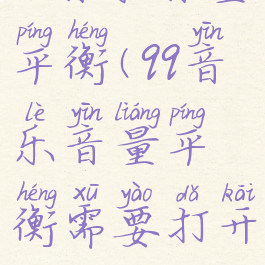 píng héng yīn
平衡(99音
lè yīn liáng píng
乐音量平
héng xū yào dǎ kāi
衡需要打开